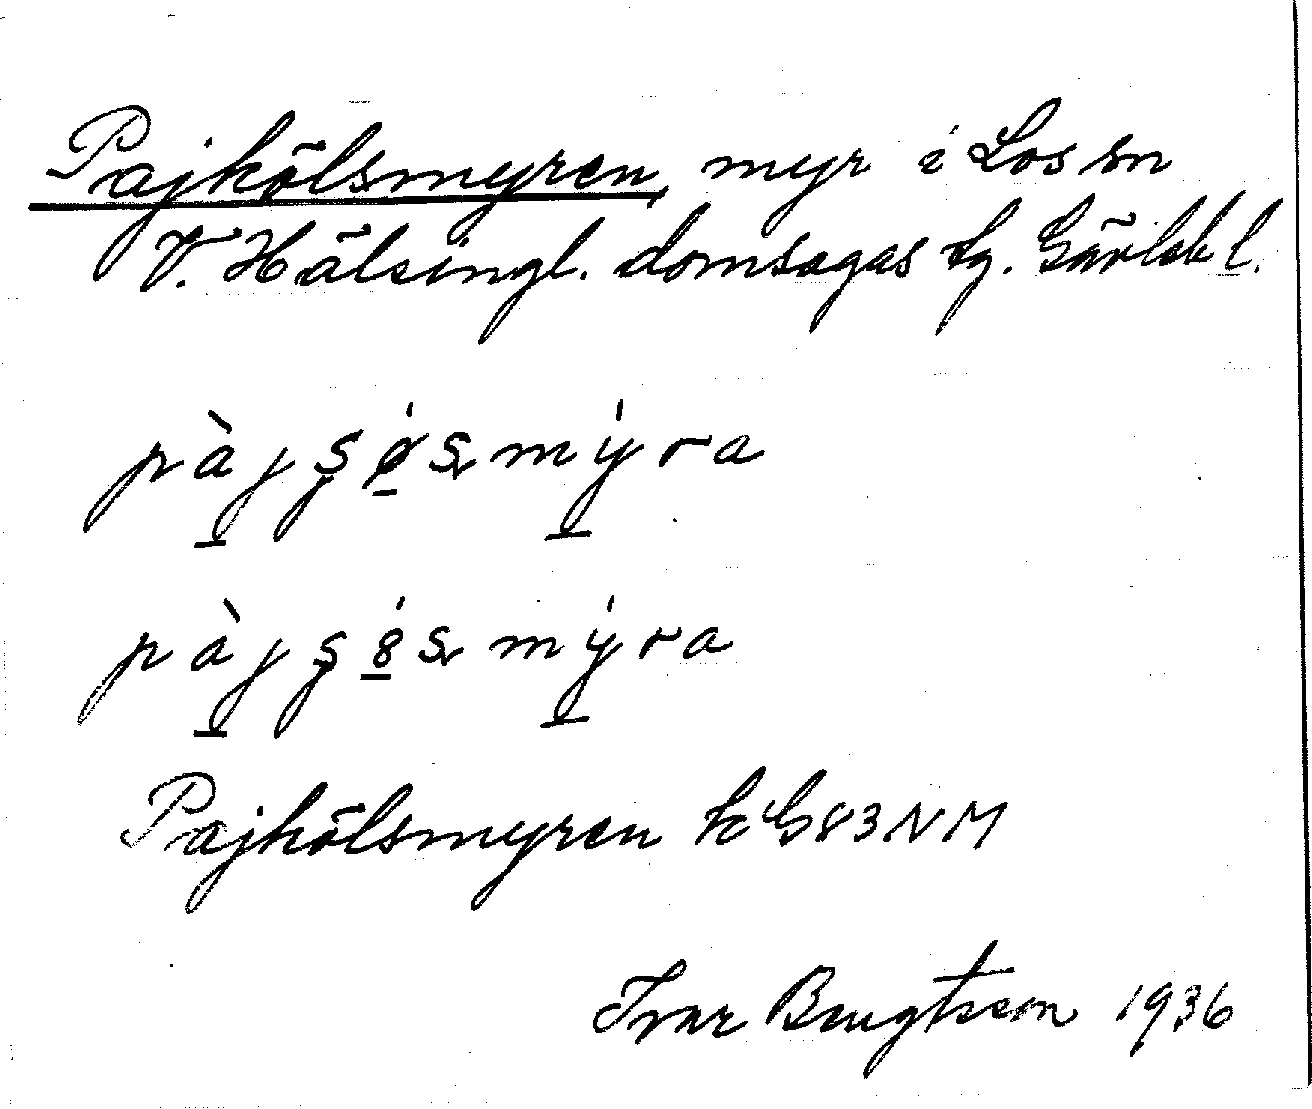 Pajkölsmyren, myr i Los sn
V. Hälsingl. domsagas tg. Gävleb l.
pàjʂø̀smýra
pàjʂ8́smýra
Pajkölsmyren k G83NM
Ivar Bengtsson 1936